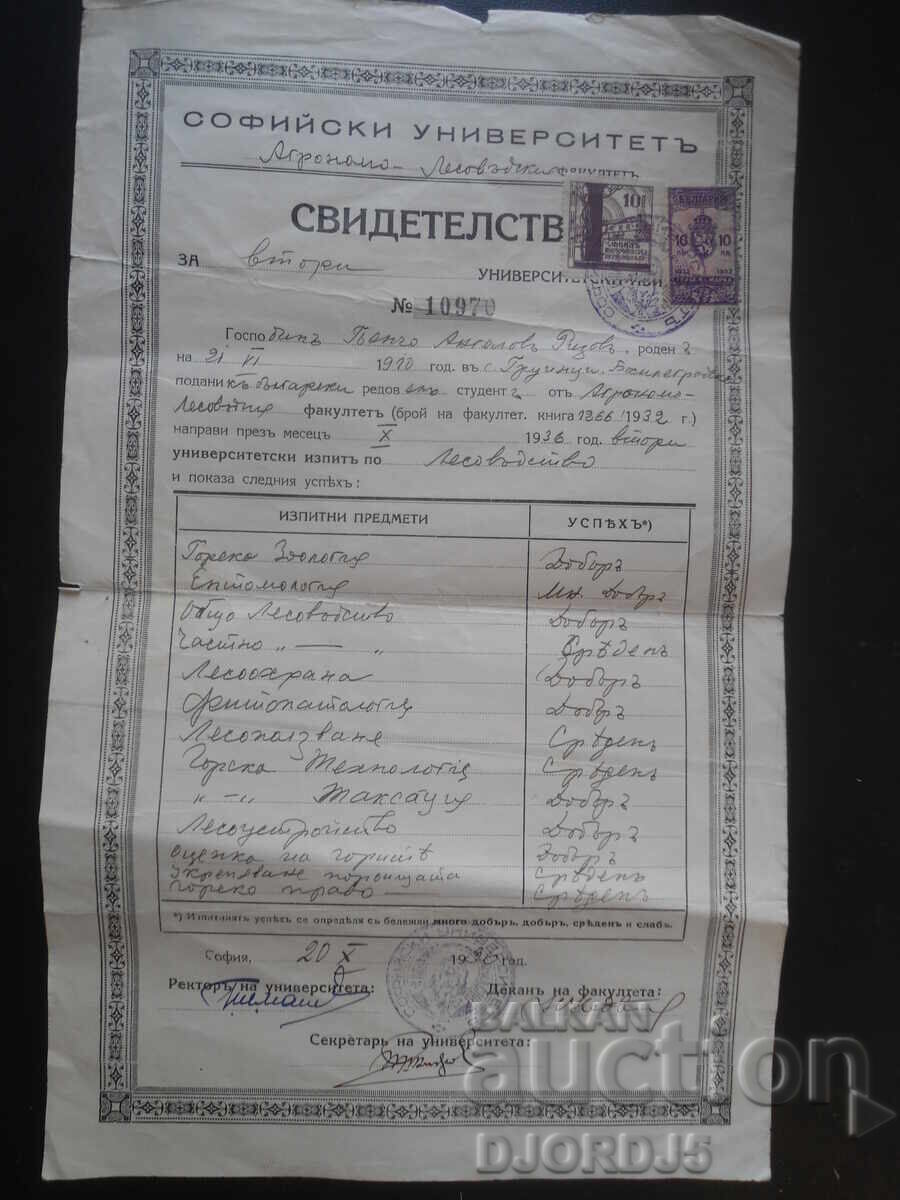 СОФИЙСКИ УНИВЕРСИТЕТЪ
Агрономо-Лесовъдски ФАКУЛТЕТЪ
СВИДЕТЕЛСТВ
ЗА втори УНИВЕРСИТЕТСКИ ИЗПИ
10
БЪЛГАРИЯ
10 10
№ 10970
Господинъ Пенчо Ангеловъ Ризовъ, роденъ
на 21 VI 1910 год. въ с.
подани къ български редовенъ студентъ отъ Агрономо-
Лесовъдския факултетъ (брой на факултет. книга 1266/1932 г.)
направи презъ месецъ X 1936 год. втори
университетски изпитъ по Лесовъдство
и показа следния успѣхъ:
ИЗПИТНИ ПРЕДМЕТИ УСПѢХЪ*)
Горска Зоология Добъръ
Ентомология Мн. Добъръ
Общо Лесовъдство Добъръ
Частно „ — „ Срѣденъ
Лесоохрана Добъръ
Фитопатология Добъръ
Лесоползване Срѣденъ
Горска Технология Срѣденъ
„ — „ Таксация Добъръ
Лесоустройство Добъръ
Оценка на горитѣ Добъръ
Укрепяване пороищата Срѣденъ
Горско право — Срѣденъ
*) Изпитният успѣх се определя съ бележки много добъръ, добъръ, срѣденъ и слабъ.
София, 20 X 1936 год.
Ректоръ на университета: Деканъ на факултета:
Секретарь на университета:
BALKAN
auction
DJORDJ5